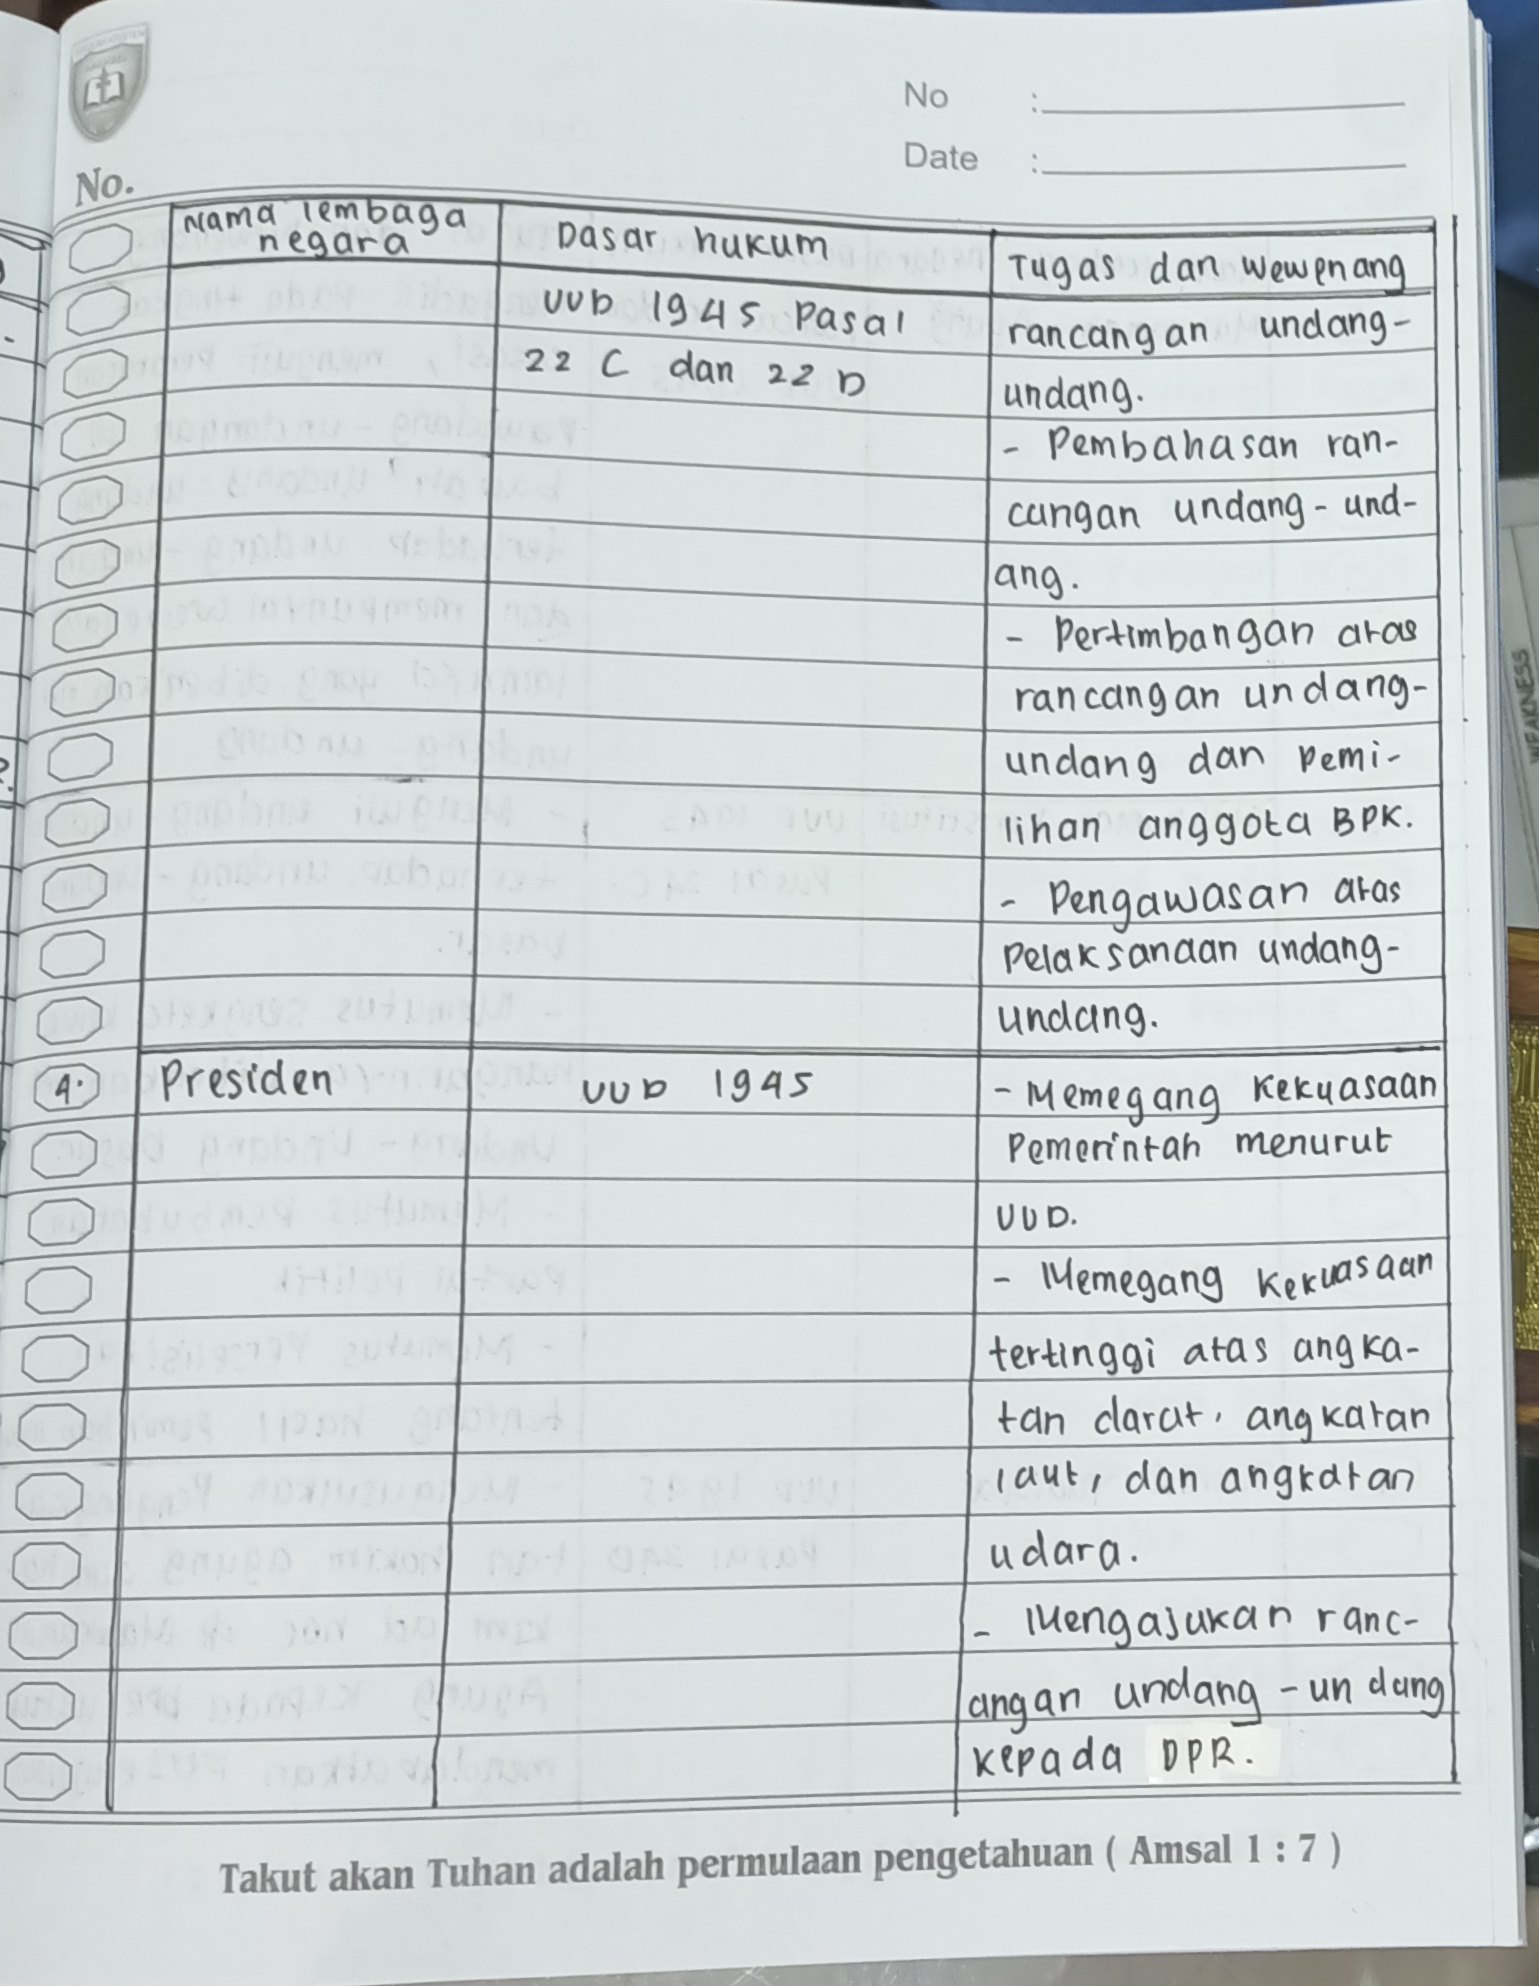 No :
Date :
No.
Nama lembaga negara Dasar hukum Tugas dan wewenang
UUD 1945 Pasal rancangan undang-
22 C dan 22 D undang.
- Pembahasan ran-
cangan undang-und-
ang.
- Pertimbangan atas
rancangan undang-
undang dan pemi-
lihan anggota BPK.
- Pengawasan atas
Pelaksanaan undang-
undang.
4. Presiden UUD 1945 - Memegang kekuasaan
Pemerintah menurut
UUD.
- Memegang kekuasaan
tertinggi atas angka-
tan darat, angkatan
laut, dan angkatan
udara.
- Mengajukan ranc-
angan undang-undang
kepada DPR.
Takut akan Tuhan adalah permulaan pengetahuan ( Amsal 1 : 7 )
WEAKNESS